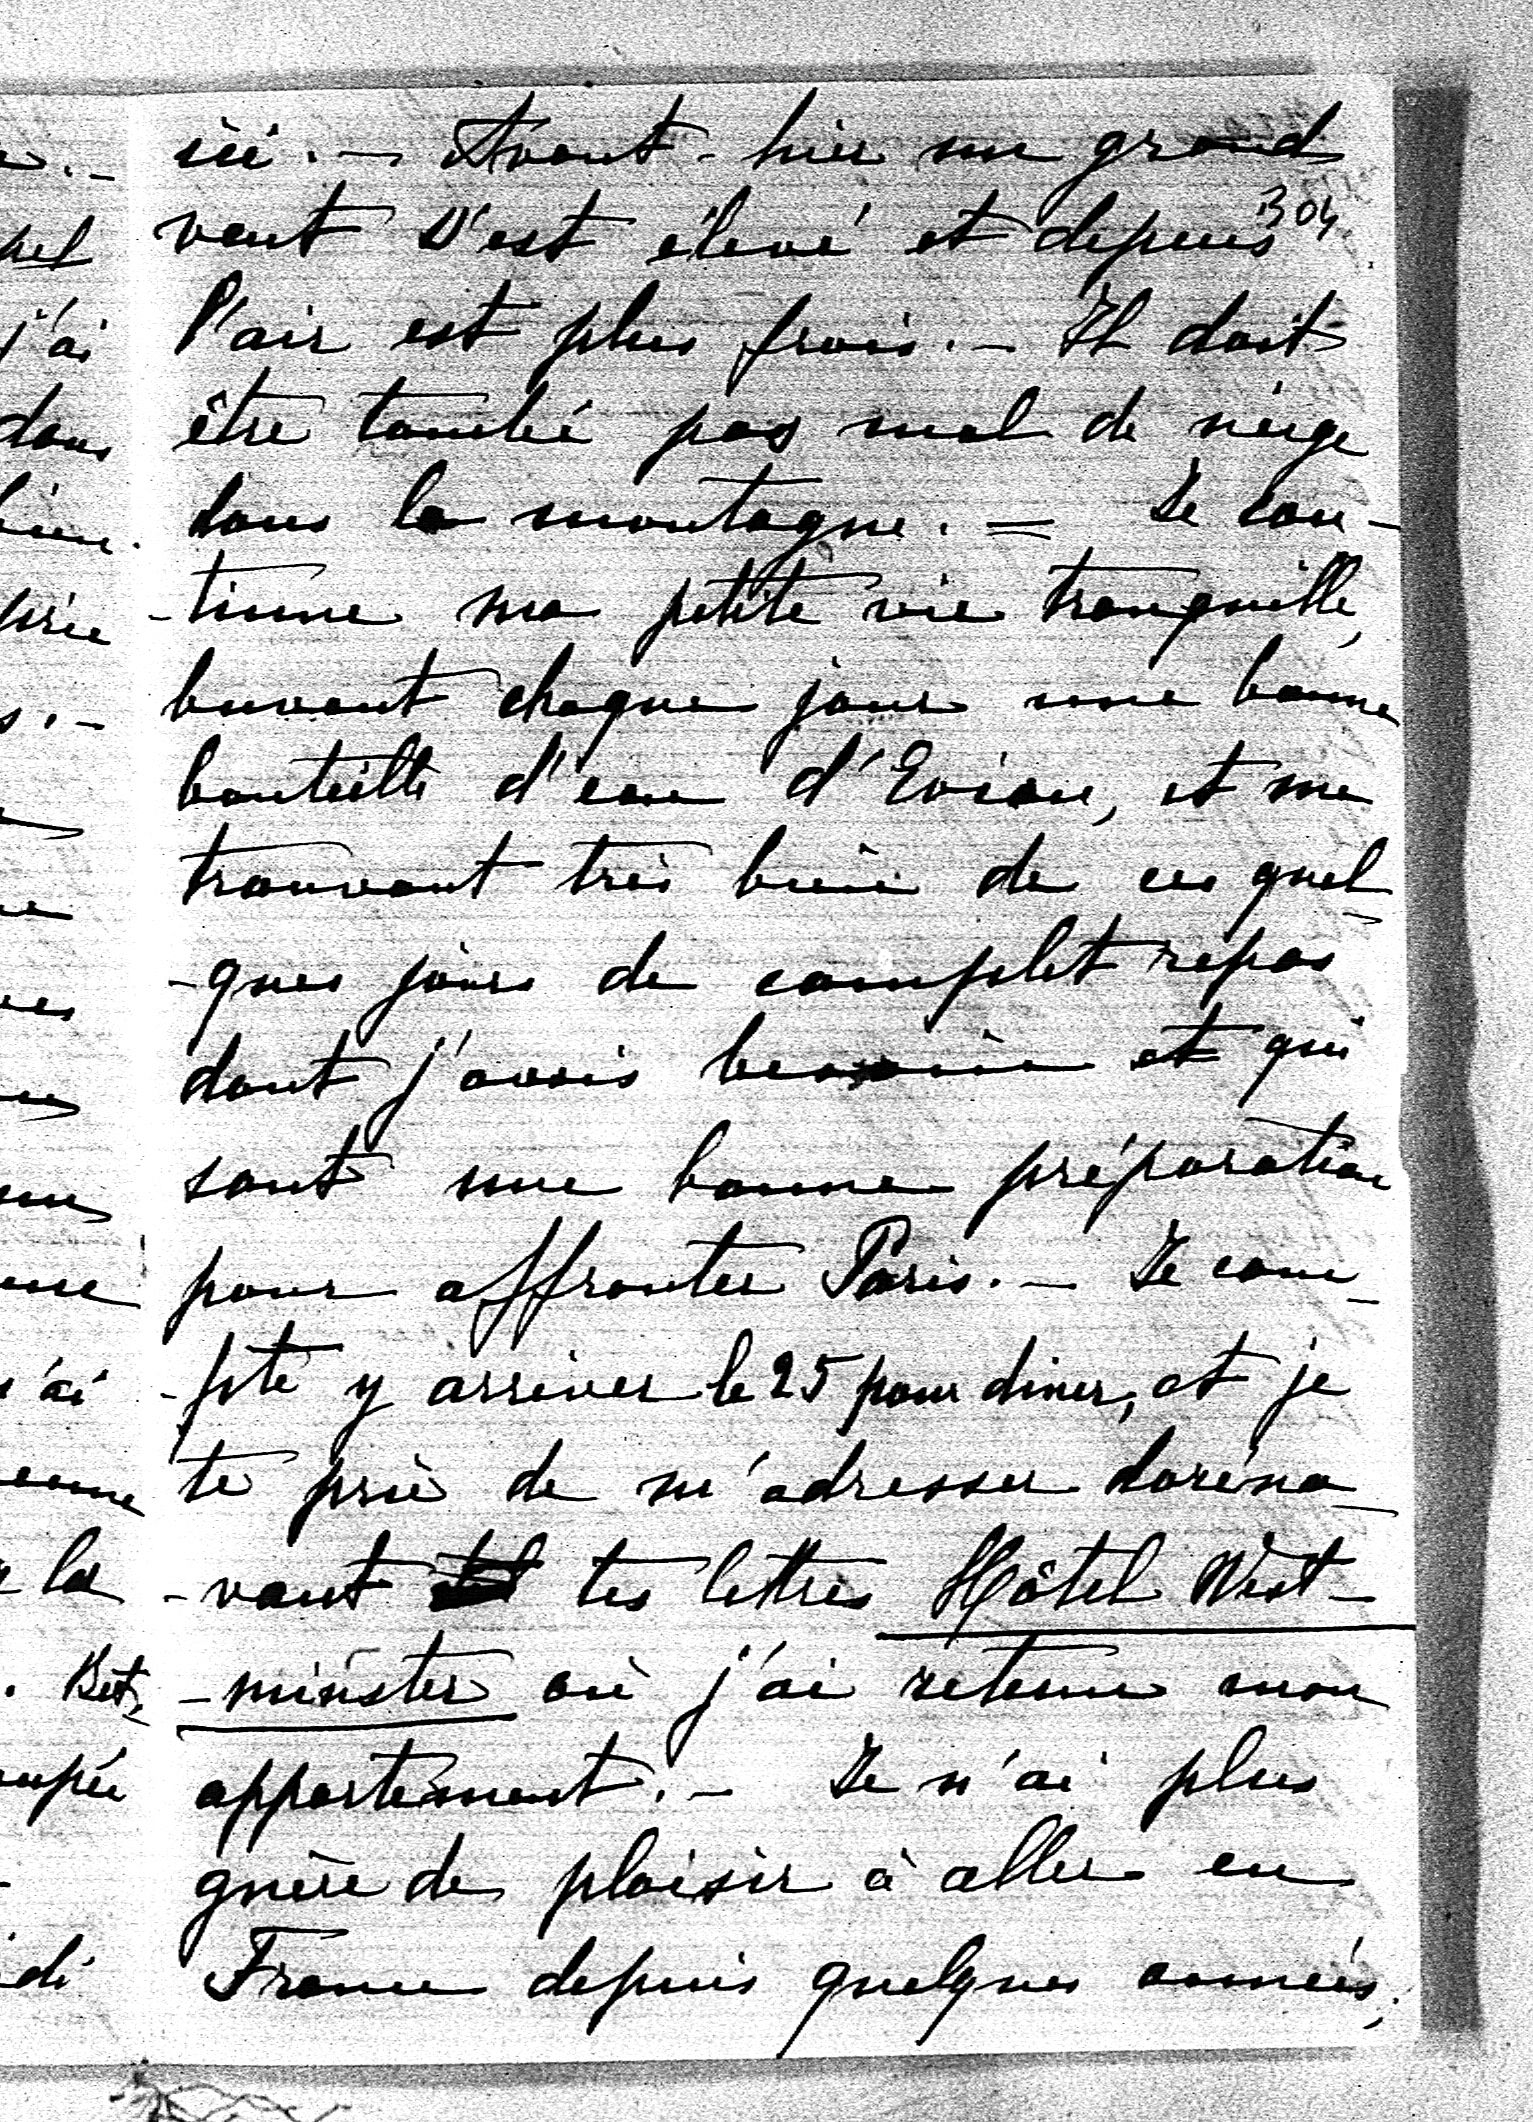 ici. — Avant-hier un grand
304
vent s'est élevé et depuis
l'air est plus frais. — Il doit
être tombé pas mal de neige
dans la montagne. — Je con-
-tinue ma petite vie tranquille,
buvant chaque jour une bonne
bouteille d'eau d'Evian, et me
trouvant très bien de ces quel-
-ques jours de complet repos
dont j'avais besoin et qui
sont une bonne préparation
pour affronter Paris. — Je com-
-pte y arriver le 25 pour diner, et je
te prie de m'adresser doréna-
-vant tes lettres Hôtel West-
-minster où j'ai retenu mon
appartement. — Je n'ai plus
guère de plaisir à aller en
France depuis quelques années,